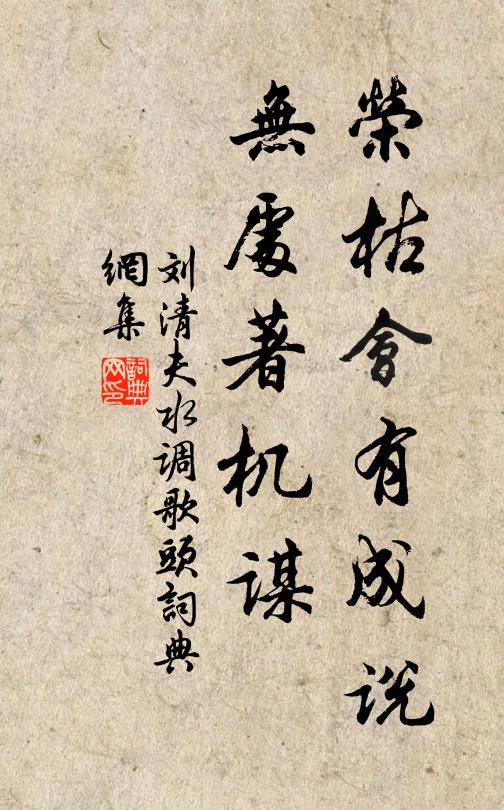 榮枯會有成说
無處著机謀
刘清夫水调歌頭詞典
網集
詞典
网印